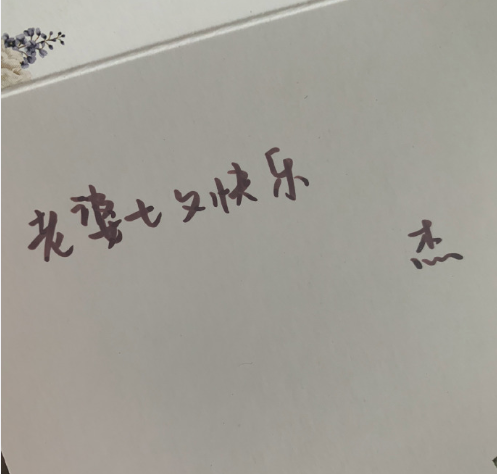 老婆七夕快乐
杰